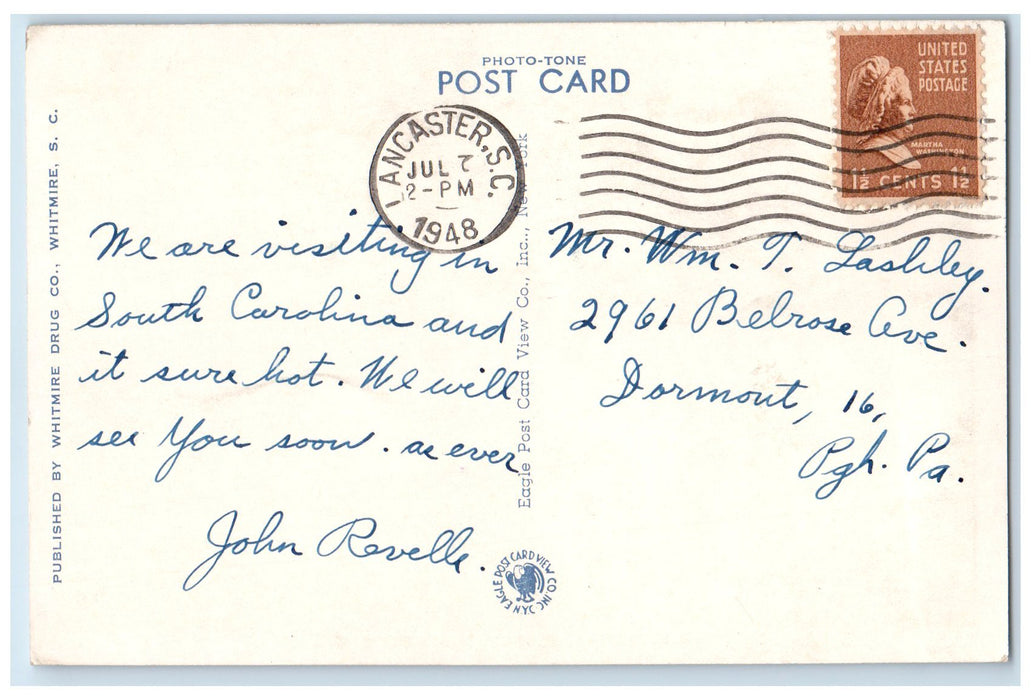 PHOTO-TONE
POST CARD
UNITED
STATES
POSTAGE
MARTHA
WASHINGTON
1½ CENTS 1½
LANCASTER, S.C.
JUL 7
2-PM
1948
PUBLISHED BY WHITMIRE DRUG CO., WHITMIRE, S. C.
We are visiting in
South Carolina and
it sure hot. We will
see You soon. as ever
John Revelle.
Eagle Post Card View Co., Inc., New York
Mr. Wm. T. Lashley.
2961 Belrose Ave.
Dormont, 16,
Pgh. Pa.
AN EAGLE POST CARD VIEW CO. INC. N.Y.